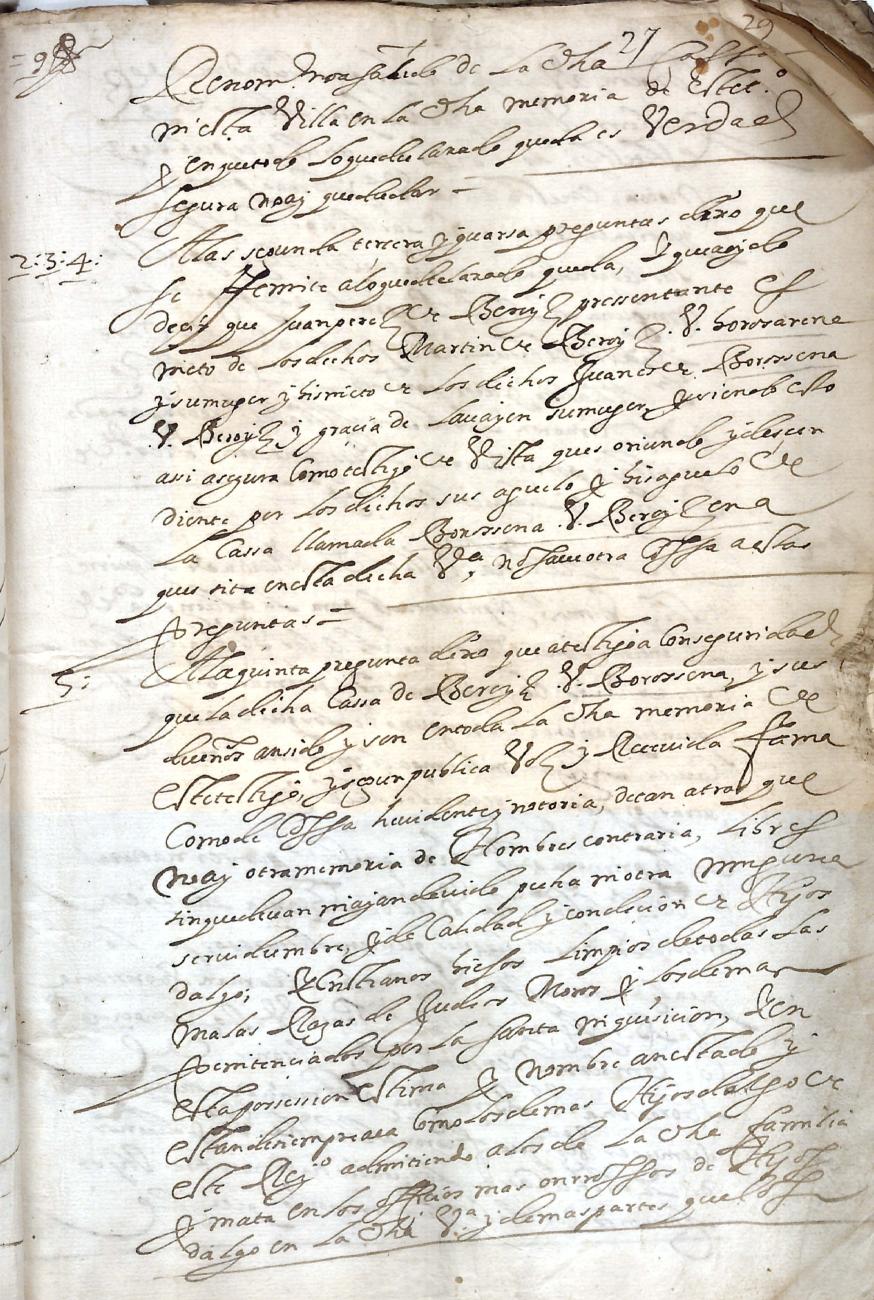 27 29
Renom ... a savido de la dha Cassa
ni esta Villa en la dha memoria de este t.º
y en que todo lo que declarado queda es Verdad
segura no ay que dudar =
2:3:4: A las segunda tersera y quarta preguntas dixo que
se Remite a lo que declarado queda, y que añade
decir que Juan perez de Beroyz pressentante es
nieto de los dichos Martin de Beroyz V. borosarena
y su muger y bisnieto de los dichos Juanes de Borossena
V. Beroyz y gracia de Lavayen su muger, y siendo esto
asi asegura como testigo de Vista ques oriundo y descen
diente por los dichos sus aguelo y bisaguelo de
la Cassa llamada Borossena V. Beroyzena
que sita en esta dicha V.ª no save otra cossa a estas
preguntas =
5: A la quinta pregunta dixo que atestigoa con seguridad
que la dicha Cassa de Beroyz V. Borossena, y sus
dueños an sido y son en toda la dha memoria de
este testigo, y segun publica Voz y Recevida fama
como de cossa hevidente y notoria, de tan atras que
no ay otra memoria de Hombres contraria, Libres
sin que devan ni ayan devido pecha ni otra ninguna
servidumbre, y de Calidad y condicion de Hijos
dalgo; Xristianos biejos Limpios de todas las
malas Razas de Judios Moros y los demas
penitenciados por la santa inquisicion, y en
esta possession estima y nombre an estado y
estan de siempre aca como los demas Hijosdalgo de
este Rey.º admitiendo a los de la dha familia
y mata en los officios mas onrrossos de Hijos
dalgo en la dha V.ª y demas partes que los